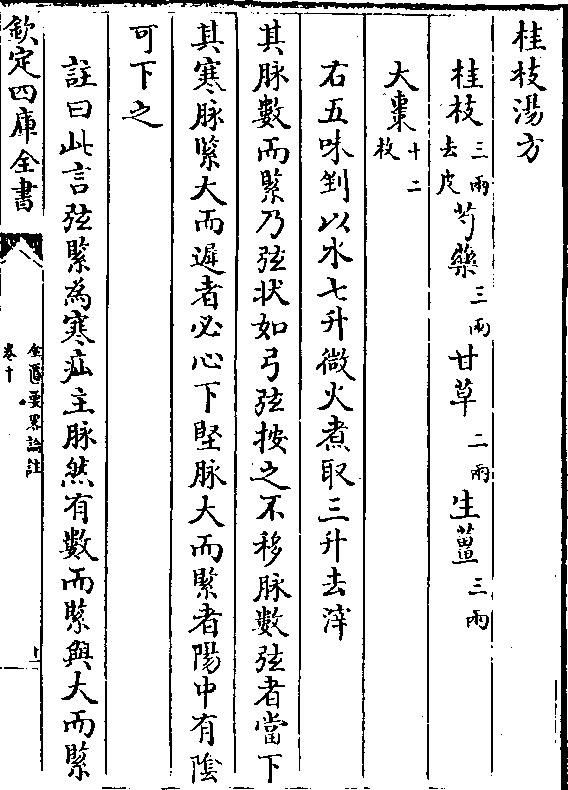 桂枝湯方
桂枝三兩去皮 芍藥三兩 甘草二兩 生薑三兩
大棗十二枚
右五味剉以水七升微火煮取三升去滓
其脉數而緊乃弦狀如弓弦按之不移脉數弦者當下
其寒脉緊大而遲者必心下堅脉大而緊者陽中有陰
可下之
註曰此言弦緊為寒疝主脉然有數而緊與大而緊
欽定四庫全書
金匱要畧論註
卷十